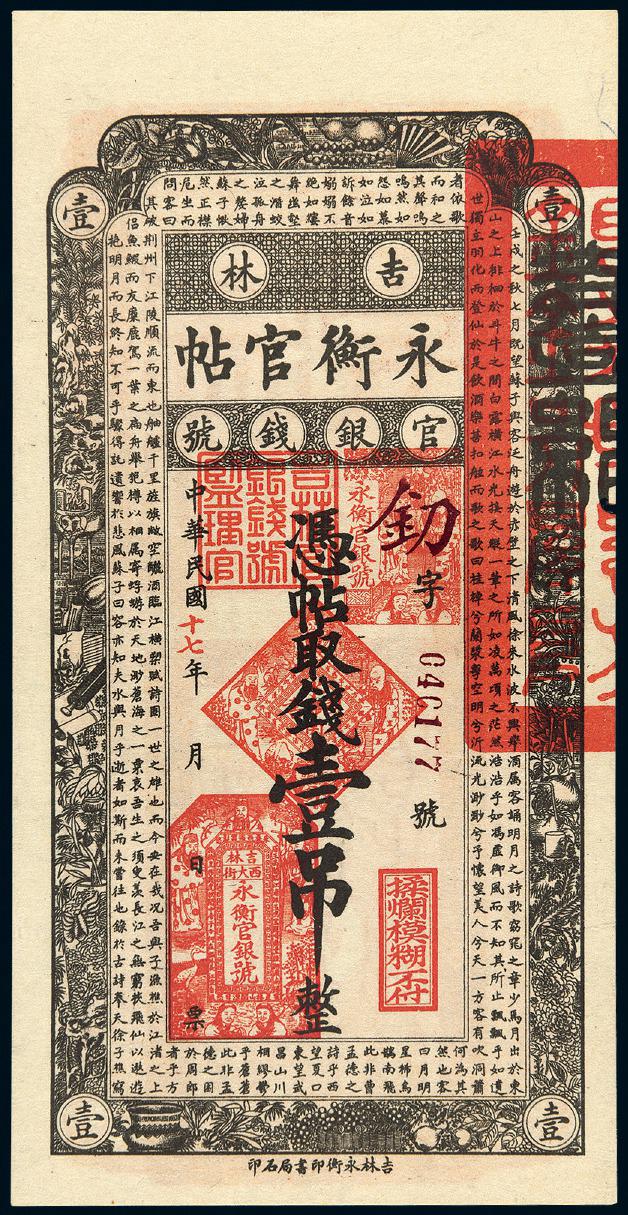 壹
壹
吉林
永衡官帖
官銀錢號
釖字
046177號
憑帖取錢壹吊整
中華民國十七年 月 日 票
吉林永衡官銀錢號監理官
永衡官銀號
吉林
西大街
永衡官銀號
揉爛模糊不付
壬戌之秋七月既望蘇子與客泛舟遊於赤壁之下清風徐來水波不興舉酒屬客誦明月之詩歌窈窕之章少焉月出於東
山之上徘徊於斗牛之間白露橫江水光接天縱一葦之所如凌萬頃之茫然浩浩乎如馮虛御風而不知其所止飄飄乎如遺
世獨立羽化而登仙於是飲酒樂甚扣舷而歌之歌曰桂棹兮蘭槳擊空明兮泝流光渺渺兮予懷望美人兮天一方客有吹洞簫
者依歌
而和之
其聲嗚
嗚然如
怨如慕
如泣如
訴餘音
嫋嫋不
絕如縷
舞幽壑
之潛蛟
泣孤舟
之嫠婦
蘇子愀
然正襟
危坐而
問客曰
何為其
然也客
曰月明
星稀烏
鵲南飛
此非曹
孟德之
詩乎西
望夏口
東望武
昌山川
相繆鬱
乎蒼蒼
此非孟
德之困
於周郎
者乎方
其破荊州下江陵順流而東也舳艫千里旌旗蔽空釃酒臨江橫槊賦詩固一世之雄也而今安在哉況吾與子漁樵於江渚之上
侶魚鰕而友麋鹿駕一葉之扁舟舉匏樽以相屬寄蜉蝣於天地渺滄海之一粟哀吾生之須臾羨長江之無窮挾飛仙以遨遊
抱明月而長終知不可乎驟得託遺響於悲風蘇子曰客亦知夫水與月乎逝者如斯而未嘗往也錄於古詩奉天徐子樵寫
壹
壹
吉林永衡印書局石印